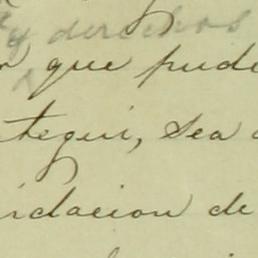 y derechos
que pude
tegui, sea
idacion de